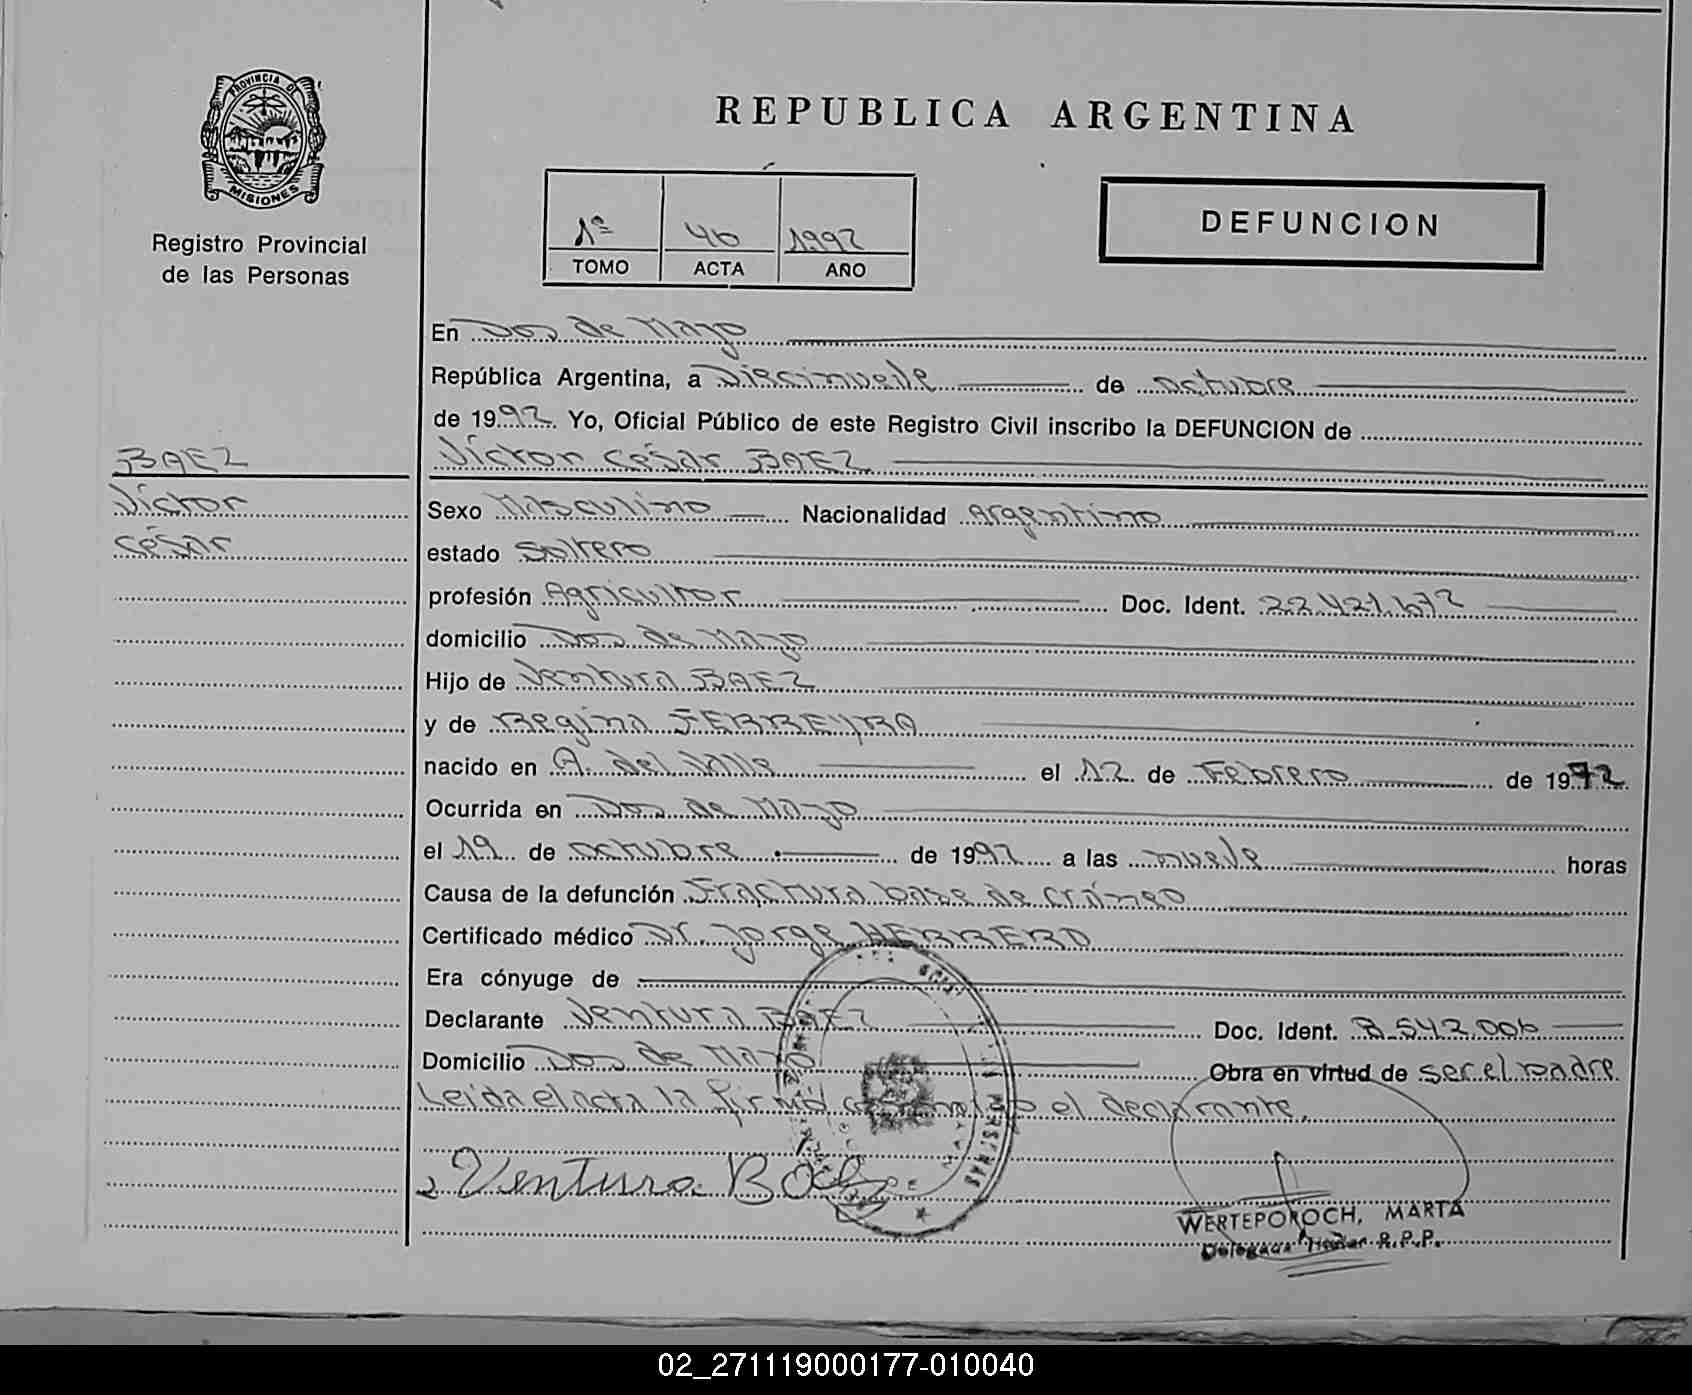 PROVINCIA DE
MISIONES
Registro Provincial
de las Personas
REPUBLICA ARGENTINA
1º 46 1992
TOMO ACTA AÑO
DEFUNCION
En Dos de Mayo
República Argentina, a Diecinueve de octubre
de 1992. Yo, Oficial Público de este Registro Civil inscribo la DEFUNCION de
BAEZ
Víctor César BAEZ
Víctor
César
Sexo Masculino Nacionalidad Argentino
estado Soltero
profesión Agricultor Doc. Ident. 22.421.672
domicilio Dos de Mayo
Hijo de Ventura BAEZ
y de Regina FERREYRA
nacido en A. del Valle el 12 de Febrero de 1972
Ocurrida en Dos de Mayo
el 19 de octubre de 1992 a las nueve horas
Causa de la defunción Fractura base de cráneo
Certificado médico Dr. Jorge HERRERO
Era cónyuge de
Declarante Ventura BAEZ Doc. Ident. 8.542.006
Domicilio Dos de Mayo Obra en virtud de ser el padre
Leída el acta la firma conmigo el declarante.
Ventura Baez
WERTEPOROCH, MARTA
Delegada Titular R.P.P.
02_271119000177-010040